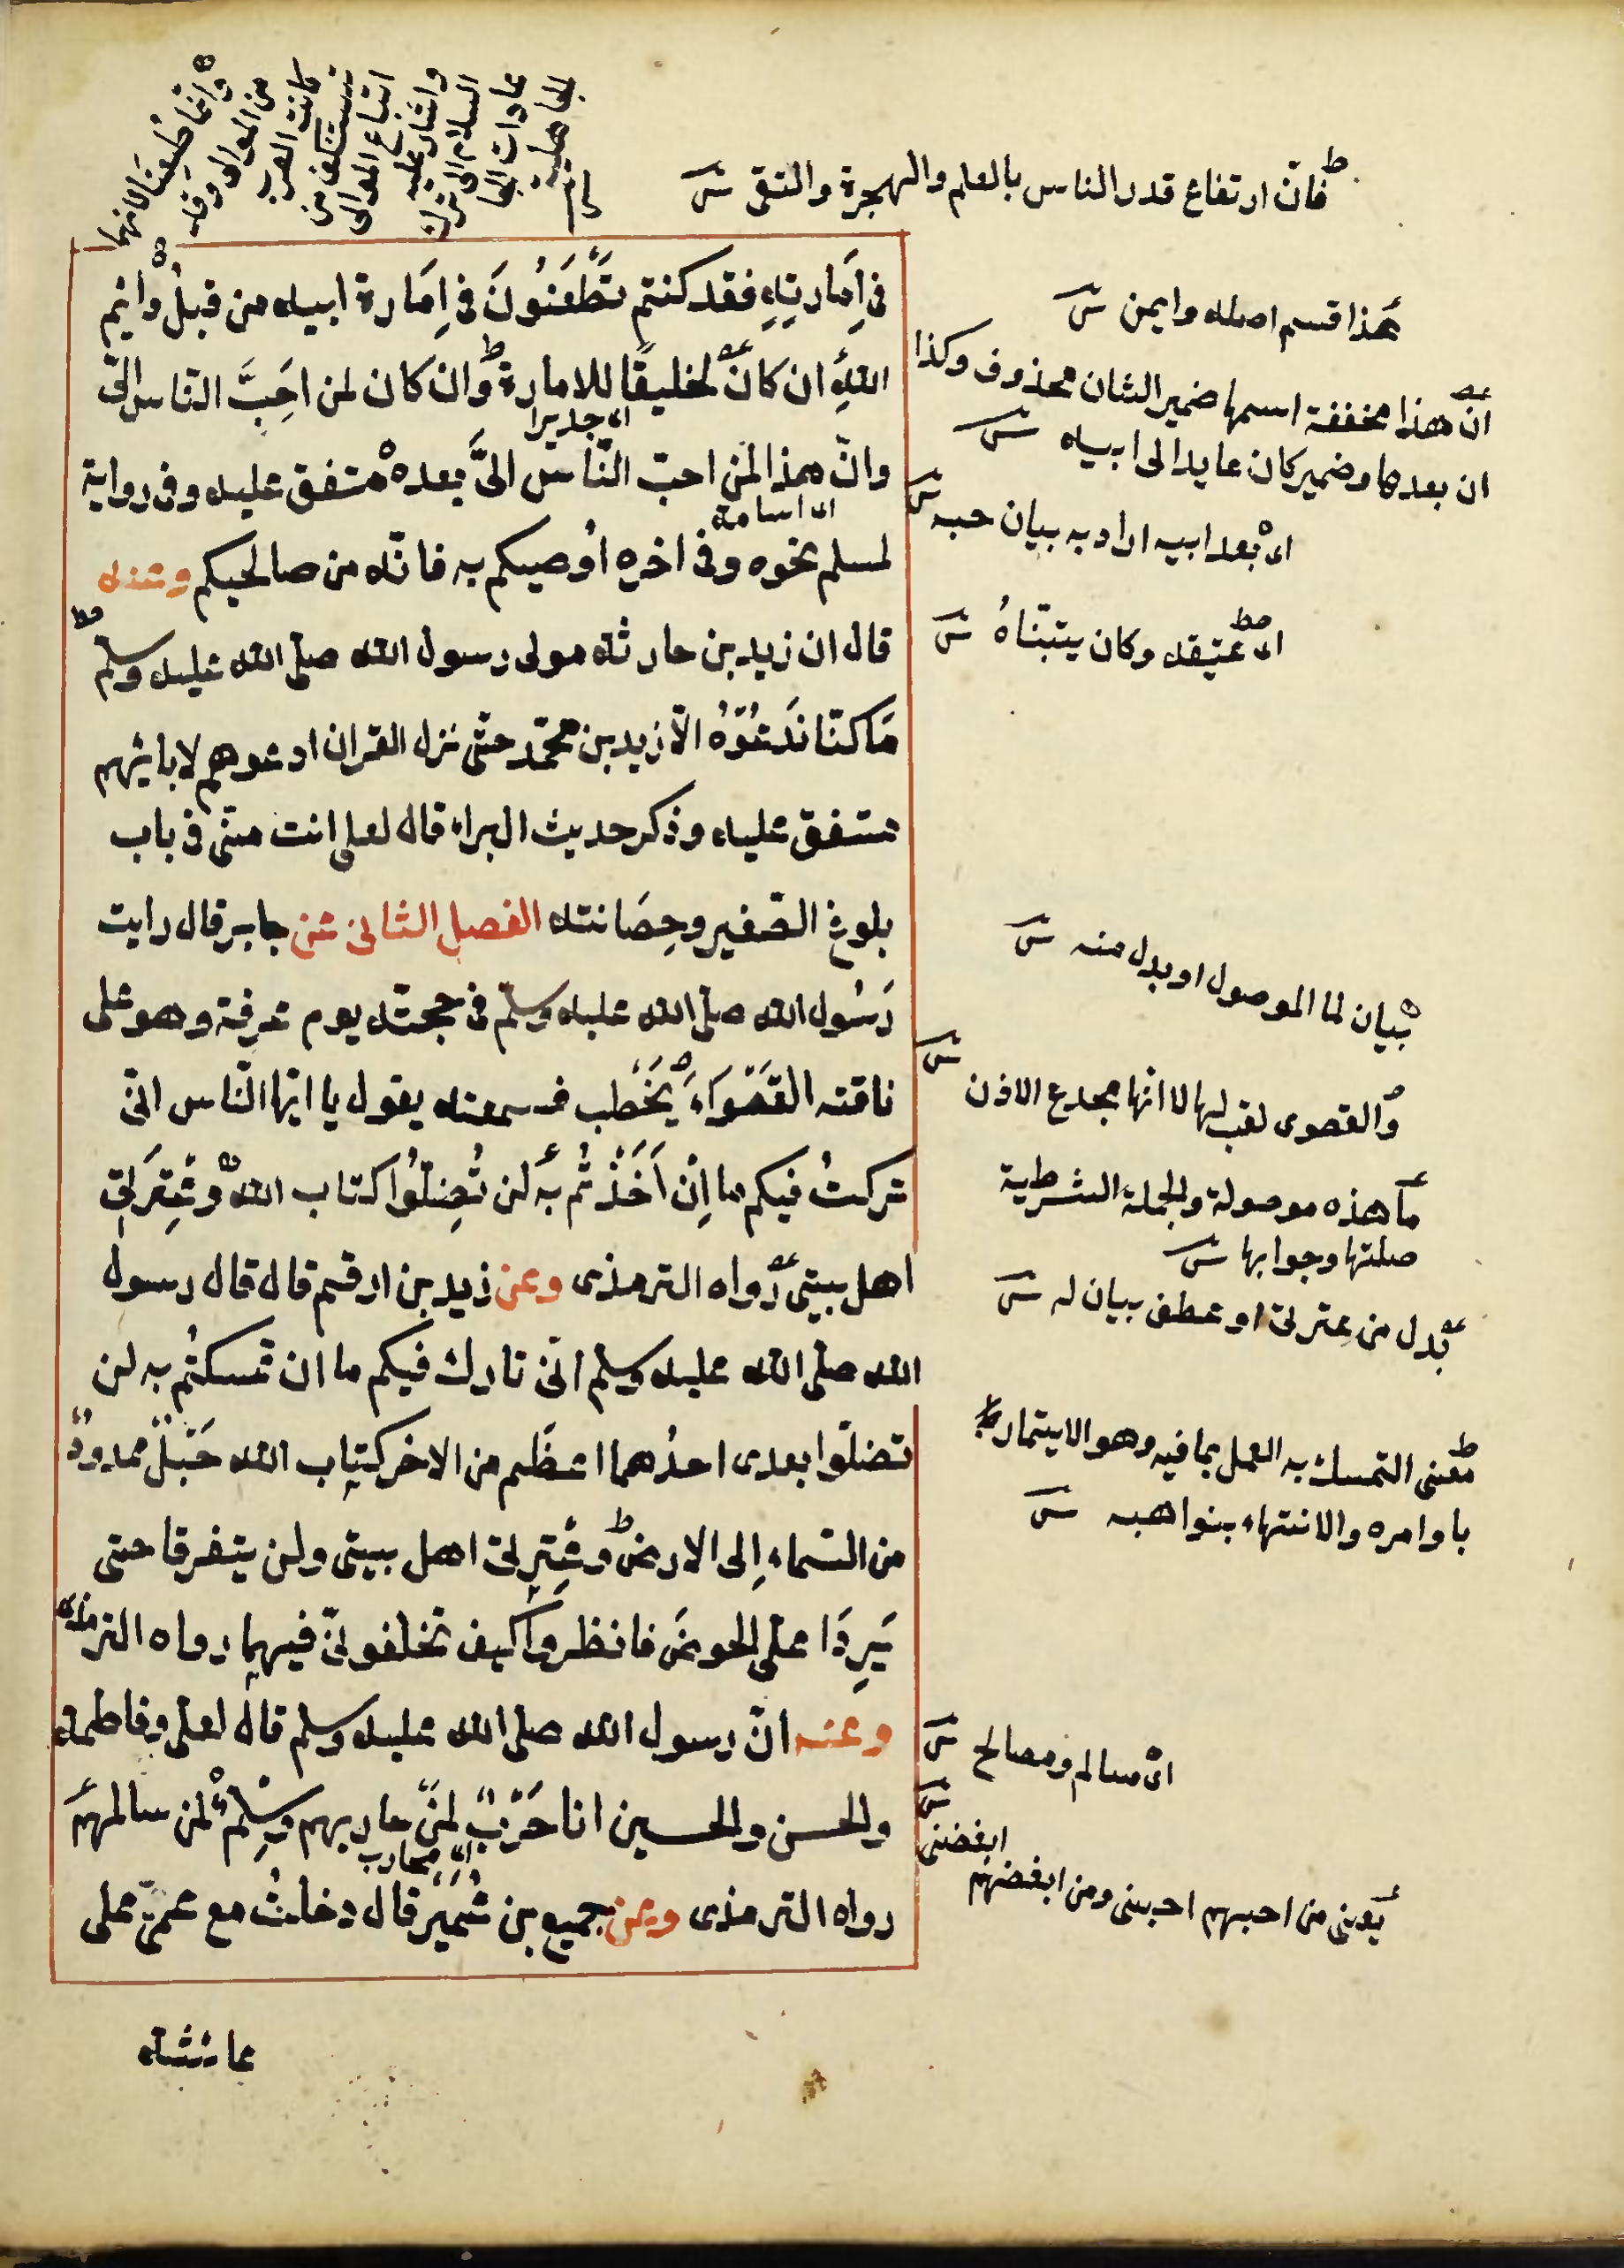 وانما طعنوا لانهما
من الموالى وقد
كانت العرب
تستنكف من
اتباع الموالى
واشار عليه
السلام الى ترك
عادات الجا
الجاهلية
فان ارتفاع قدر الناس بالعلم والهجرة والتقى ش
فى اِمارتِهِ فقد كنتم تَطْعَنُونَ فى اِمَارة ابيه من قبلُ وايم
اللهِ ان كان لخليقًا للامارة وان كان لمن اَحَبِّ النّاس الىّ
اى جديرا
وانّ هذا لمن احبّ النّاس الىَّ بعده متفق عليه وفى رواية
اى اسامة
لمسلم نحوه وفى اخرِه اُوصيكم به فانّه من صالحيكم وعنه
قال ان زيد بن حارثة مولى رسول الله صلى الله عليه وسلم
مَا كنّا نَدْعُوْهُ الّا زيد بن محمّد حتّى نزل القران ادعوهم لابائهم
متفق عليه وذكر حديث البراء قال لعلى انت منّى فى باب
بلوغ الصّغير وحِضَانته الفصل الثانى عن جابر قال رايت
رَسُول الله صلى الله عليه وسلم فى حجته يوم عرفة وهو على
ناقته القَصْوَاءِ يَخْطب فسمعته يقول يا ايّها النّاس انّى
تركتُ فيكم ما اِنْ اَخَذْتُم به لن تُضِلّوُا كتاب الله وعِتْرَتِى
اهل بيتى رواه الترمذى وعن زيد بن ارقم قال قال رسول
الله صلى الله عليه وسلم انّى تارك فيكم ما ان تمسكتُم به لن
تضلّوا بعدى احدُهما اعظَم من الاخر كتاب الله حَبْلٌ ممدودٌ
من السّماءِ اِلى الارض وعِتْرتى اهل بيتى ولن يتفرقا حتى
يَرِدَا على الحوض فانظروا كيف تخلفونّى فيهما رواه الترمذى
وعنه انّ رسول الله صلى الله عليه وسلم قال لعلى وفاطمة
والحسن والحسين انا حَرْبٌ لمنْ حاربهم وسِلْمٌ لمن سالمهم
اى محارب
رواه الترمذى وعن جميع بن عُمَيْر قال دخلتُ مع عمّتى على
عائشة
هذا قسم اصله وايمن ش
ان هذا مخففة اسمها ضمير الشان محذوف وكذا
ان بعدها وضمير كان عايد الى ابيه ش
اى بعد ابيه اراد به بيان حبه ش
اى عتيقه وكان يتبنّاهُ ش
بيان لما الموصول او بدل منه ش
والقصوى لقب لها لا انها مجدع الاذن ش
ما هذه موصولة والجملة الشرطية
صلتها وجوابها ش
بدل من عترتى او عطف بيان له ش
معنى التمسك به العمل بما فيه وهو الايتمار
باوامره والانتهاء بنواهيه ش
اى مسالم ومصالح ش
يعنى من احبهم احبنى ومن ابغضهم
ابغضنى ش